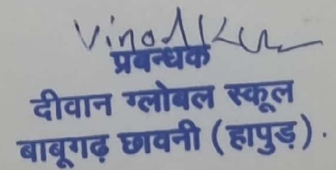 Vinod Kum
प्रबन्धक
दीवान ग्लोबल स्कूल
बाबूगढ़ छावनी (हापुड़).